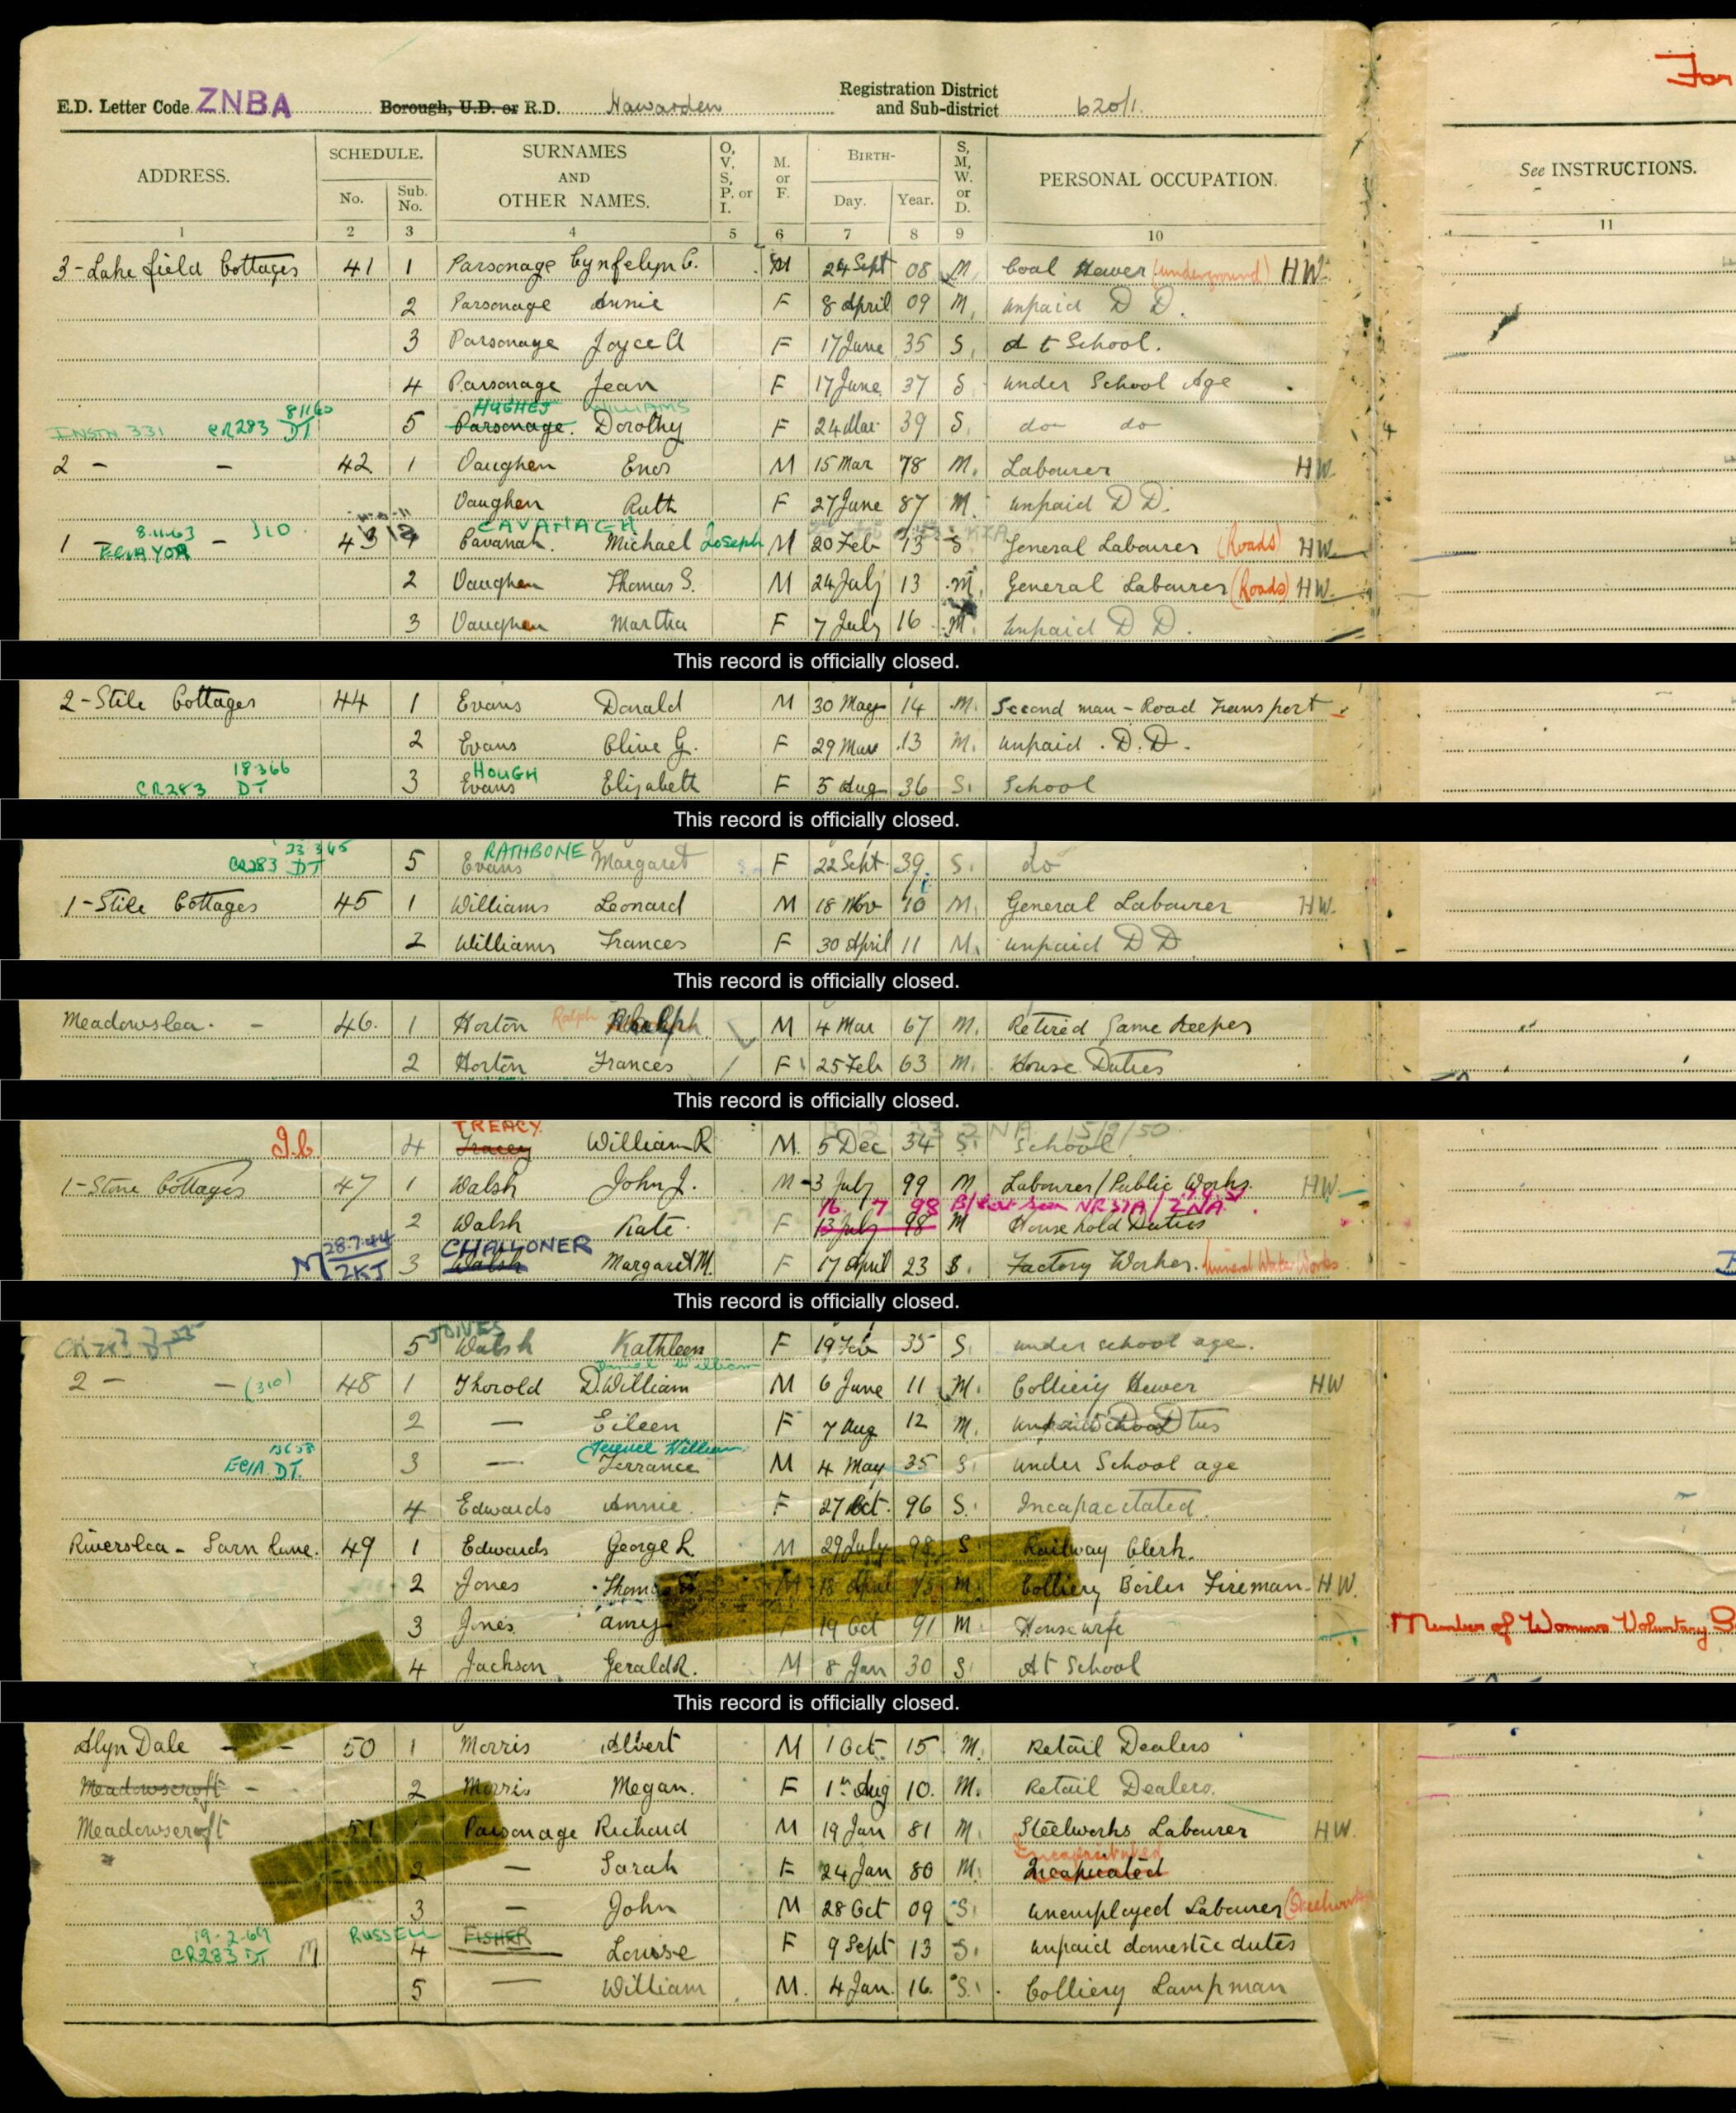 For
E.D. Letter Code ZNBA Borough, U.D. or R.D. Hawarden Registration District and Sub-district 620/1.
ADDRESS. SCHEDULE. No. Sub. No. SURNAMES AND OTHER NAMES. O, V, S, P, or I. M. or F. BIRTH- Day. Year. S, M, W. or D. PERSONAL OCCUPATION. See INSTRUCTIONS.
1 2 3 4 5 6 7 8 9 10 11
3 - Lakefield Cottages 41 1 Parsonage Cynfelyn C. M 24 Sept 08 M. Coal Hewer (underground) HW
2 Parsonage Annie F 8 April 09 M. Unpaid D D.
3 Parsonage Joyce A F 17 June 35 S. At School.
4 Parsonage Jean F 17 June 37 S Under School Age
81160 HUGHES WILLIAMS
INSTN 331 CR283 DT 5 Parsonage. Dorothy F 24 Mar 39 S. do do
2 - - 42 1 Vaughen Enos M 15 Mar 78 M. Labourer HW
Vaughen Ruth F 27 June 87 M. Unpaid D D.
8.11.63 310 CAVANAGH
1 - - 43 1 Cavanah. Michael Joseph M 20 Feb 13 S. General Labourer (Roads) HW
2 Vaughen Thomas S. M 24 July 13 M. General Labourer (Roads) HW
3 Vaughen Martha F 7 July 16 M. Unpaid D D.
This record is officially closed.
2 - Stile Cottages 44 1 Evans Donald M 30 May 14 M. Second man - Road Transport
2 Evans Olive G. F 29 Mar 13 M. Unpaid. D.D.
18366 HOUGH
CR283 DT 3 Evans Elizabeth F 5 Aug 36 S. School
This record is officially closed.
23 3 65 RATHBONE
CR283 DT 5 Evans Margaret F 22 Sept 39. S. do
1 - Stile Cottages 45 1 Williams Leonard M 18 Nov 10 M. General Labourer HW
2 Williams Frances F 30 April 11 M. Unpaid D D
This record is officially closed.
Meadowslea. - 46. 1 Horton Ralph Ralph M 4 Mar 67 M. Retired Game Keeper
2 Horton Frances F 25 Feb 63 M. House Duties
This record is officially closed.
TREACY 15/9/50
4 Tracey William R M. 5 Dec 34 S. School
1 - Stone Cottages 47 1 Walsh John J. M 3 July 99 M Labourer/Public Works. HW
16 7 98 NR ZNA
2 Walsh Kate. F 13 July 98 M Household Duties
28.7.44 CHALLONER
M ZKJ 3 Walsh Margaret M. F 17 April 23 S. Factory Worker. Mineral Water Works
This record is officially closed.
JOINES
5 Walsh Kathleen F 19 Feb 35 S. under school age.
Daniel William
2 - - (310) 48 1 Thorold D. William M 6 June 11 M. Colliery Hewer HW
2 — Eileen F 7 Aug 12 M.
Terence William
DT. 3 — Terrance M 4 May 35 S. under School age
4 Edwards Annie. F 27 Oct. 96 S. Incapacitated.
Riverslea - Sarn Lane. 49 1 Edwards George R. M 29 July 98 S Railway Clerk.
2 Jones Thomas M 18 April M. Colliery Boiler Fireman - HW
3 Jones Amey F 19 Oct 91 M. Housewife Member of Womens Voluntary S
4 Jackson Gerald R. M 8 Jan 30 S. At School
This record is officially closed.
Alyn Dale - - 50 1 Morris Albert M 1 Oct. 15 M. Retail Dealers
Meadowscroft - 2 Morris Megan. F 1st Aug 10. M. Retail Dealers.
Meadowscroft 51 Parsonage Richard M 19 Jan 81 M. Steelworks Labourer HW.
Incapacitated
2 — Sarah F 24 Jan 80 M. Incapicated
3 — John M 28 Oct 09 S. Unemployed Labourer (Steelworks
19-2-69 RUSSELL FISHER
CR283 DT M 4 Louise F 9 Sept 13 S. unpaid domestic duties
5 — William M. 4 Jan. 16. S. Colliery Lampman